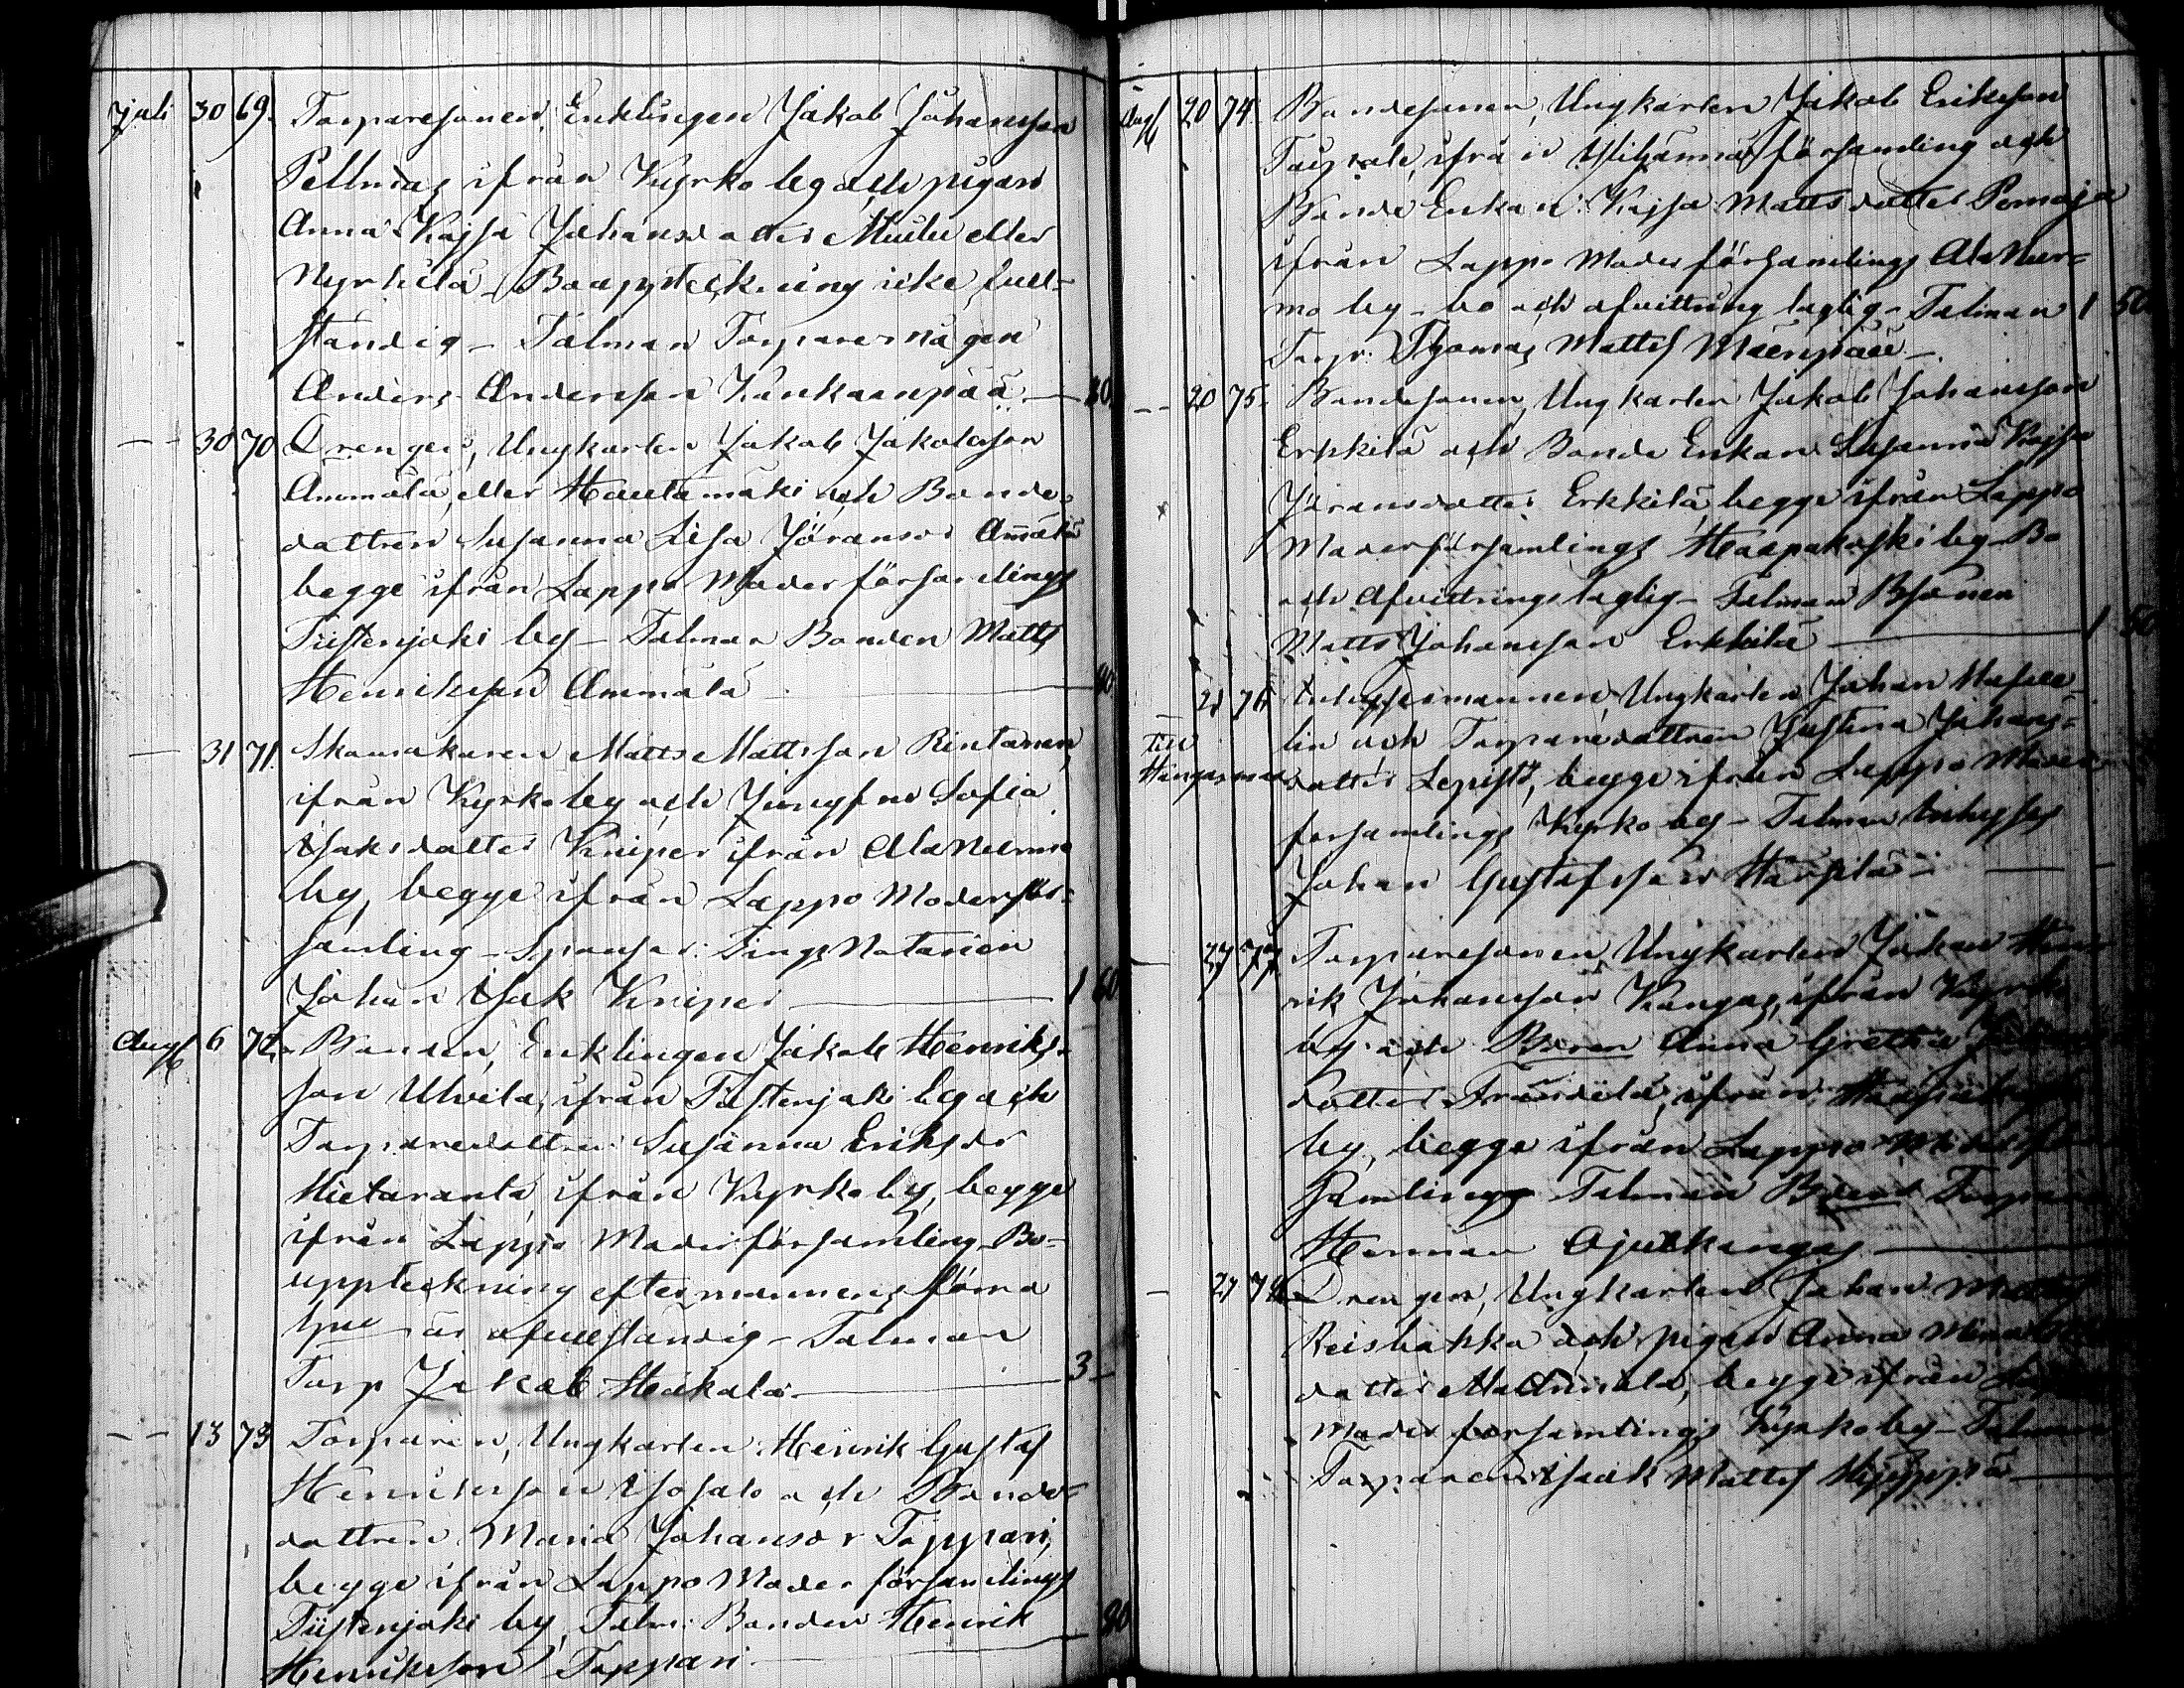 Juli 30 69. Torparesonen, Enklingen Jakob Johansson
Pellmas ifrån Kyrkoby och pigan
Anna Kajsa Johansdotter Muilu eller
Nyrhilä - Bouppteckning icke full-
ständig - Talman Torparemågen
Anders Andersson Kankaanpää. — 80
— 30 70 Drengen, Ungkarlen Jakob Jakobsson
Ammälä, eller Hautamäki och Bonde-
dottren Susanna Lisa Jöransdr Ammälä
begge ifrån Lappo Moderförsamlings
Tiistenjoki by - Talman Bonden Matts
Henriksson Ammälä — 80
— 31 71. Skomakaren Matts Mattsson Rintanen,
ifrån Kyrkoby och Jungfru Sofia
Isaksdotter Kniper ifrån Ala Nurmo
by, begge ifrån Lappo Moderför-
samling - Sponsor: Tings Notarien
Johan Isak Kniper — 1 60
Aug 6 72. Bonden, Enklingen Jakob Henriks-
son Ulvila, ifrån Tiistenjoki by och
Torparedottren Susanna Eriksdr
Hietaranta, ifrån Kyrkoby, begge
ifrån Lappo Moderförsamling - Bo-
uppteckning efter mannens förra
är ofullständig - Talman
Torp Jakob Heikala — 3 —
— 13 73 Torparen, Ungkarlen Henrik Gustaf
Henriksson Isosalo och Bonde-
dottren Maria Johansdr Toppari,
begge ifrån Lappo Moderförsamlings
Tiistenjoki by, Talm: Bonden Henrik
Henriksson Toppari — 80
Aug 20 74. Bondesonen, Ungkarlen Jakob Eriksson
Taipale, ifrån Ylihärmä församling och
Bonde Enkan Kajsa Mattsdotter Pernaja
ifrån Lappo Moderförsamlings Ala Nur-
mo by - bo och afvittring laglig - Talman 1 50
Torp. Thomas Matts Mäenpää —
— 20 75. Bondesonen, Ungkarlen Jakob Johansson
Erkkilä och Bonde Enkan Susanna Kajsa
Jöransdotter Erkkilä begge ifrån Lappo
Moderförsamlings Haapakoski by - Bo
och Afvittring laglig - Talman Bsonen
Matts Johansson Erkkilä — 1 50
— 21 76 Inhysesmannen, Ungkarlen Johan
Till lin och Torparedottren Justina Johans-
dotter Lepistö, begge ifrån Lappo Moder-
församlings Kyrkoby - Talman Inhyses
Johan Gustafsson Härsilä — —
— 27 77 Torparesonen, Ungkarlen Johan Hen
rik Johansson Kangas, ifrån Kyrko
by och Anna Gretha
dotter ifrån
by, begge ifrån Lappo Moderför
samlings Talman
Herman Ojutkangas —
— 27 78 Drengen, Ungkarlen Johan Matts
Reisbakka och pigan Anna
dotter begge ifrån
Moderförsamlings Kyrkoby - Talman
Torparen Isaak Matts